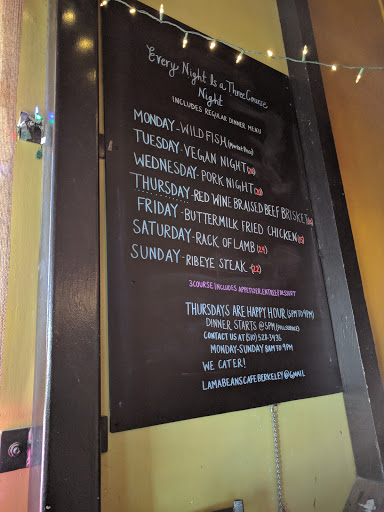 Every Night Is a Three Course
Night
INCLUDES REGULAR DINNER MENU
MONDAY-WILD FISH (Market Price)
TUESDAY-VEGAN NIGHT
WEDNESDAY-PORK NIGHT
THURSDAY-RED WINE BRAISED BEEF BRISKET
FRIDAY-BUTTERMILK FRIED CHICKEN
SATURDAY-RACK OF LAMB (24)
SUNDAY-RIBEYE STEAK-(22)
3COURSE INCLUDES APPETIZER, ENTREE & DESSERT
THURSDAYS ARE HAPPY HOUR (5PM TO 9PM)
DINNER STARTS @ 5PM
CONTACT US AT (510) 528-3936
MONDAY-SUNDAY 8AM TO 9PM
WE CATER!
LAMABEANSCAFEBERKELEY@GMAIL